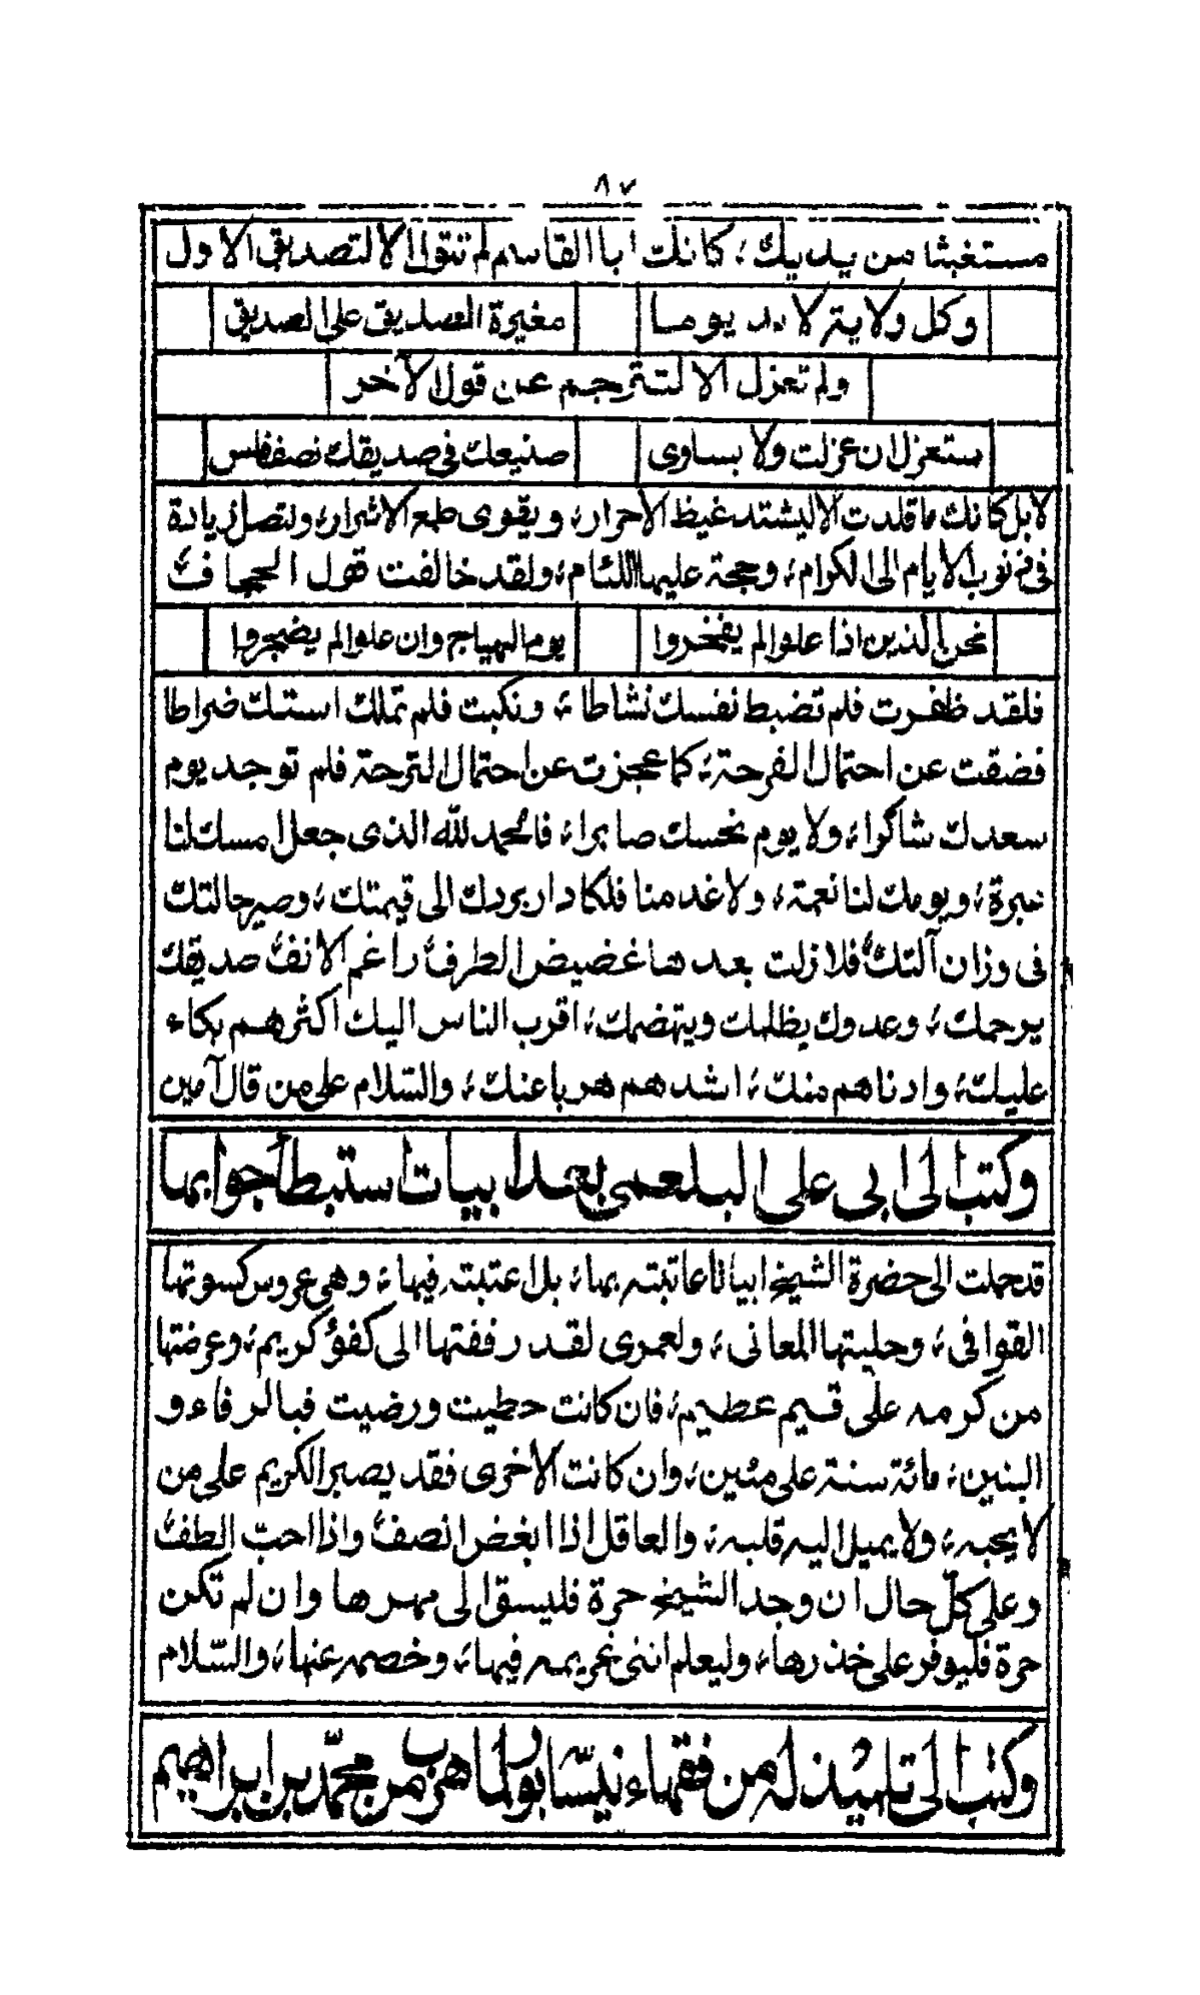 ٨٧
مستغيثا من يديك، كانك ابا القاسم لم تتول الا لتصديق الاول
وكل ولاية لا بد يوما مغيرة الصديق على الصديق
ولم تعزل الا لتترجم عن قول الآخر
ستعزل ان عزلت ولا يساوى صنيعك فى صديقك نصف فلس
لا بل كانك ما قلدت الا ليشتد غيظ الاحرار، ويقوى طمع الاشرار، ولتصل زيادة
فى ذنوب الايام الى الكرام، وحجة عليها اللئام، ولقد خالفت قول الحجاف
نحن الذين اذا علوا لم يفخروا يوم الهياج وان علوا لم يضجروا
فلقد ظفرت فلم تضبط نفسك نشاطا، ونكبت فلم تملك استك ضراطا
فضقت عن احتمال الفرحة، كما عجزت عن احتمال الترحة فلم توجد يوم
سعدك شاكرا، ولا يوم نحسك صابرا، فالحمد لله الذى جعل امسك لنا
عبرة، ويومك لنا نعمة، ولا غد منا فلكا دار بردك الى قيمتك، وصير حالتك
فى وزان آلتك، فلا زلت بعدها غضيض الطرف راغم الانف صديقك
يرحمك، وعدوك يظلمك ويتهضمك، اقرب الناس اليك اكثرهم بكاء
عليك، وادناهم منك، اشدهم هربا عنك، والسّلام على من قال آمين
وكتب الى ابى على البلعمى بعد ابيات استبطأ جوابها
قد حملت الى حضرة الشيخ ابياتا عاتبته بها، بل اعتبته فيها، وهى عروس كسوتها
القوافى، وحليتها المعانى، ولعمرى لقد زففتها الى كفؤ كريم، وعرضتها
من كرمه على قسيم عظيم، فان كانت حظيت ورضيت فبالرفاء و
البنين، مائة سنة على مئين، وان كانت الاخرى فقد يصبر الكريم على من
لا يحبه، ولا يميل اليه قلبه، والعاقل اذا ابغض انصف واذا احبّ الطف
وعلى كلّ حال ان وجد الشيخ حرة فليسق الى مهرها وان لم تكن
حرة فليوفر على خدرها، وليعلم اننى غريمه فيها، وخصمه عنها، والسّلام
وكتب الى تلميذ له من فقهاء نيسابور لما هرب من محمّد بن ابراهيم